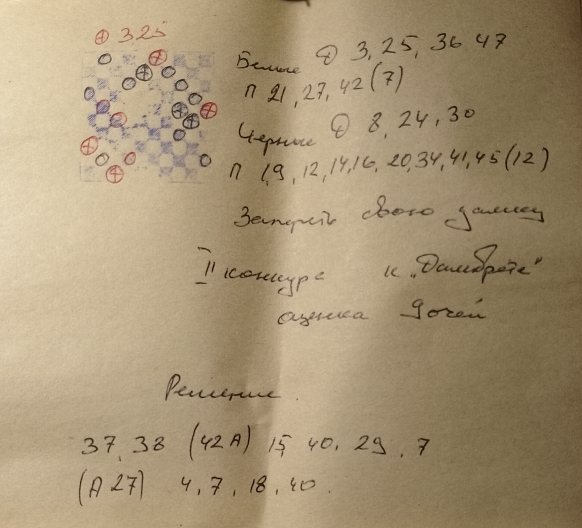 ⊕ 325
Белые Д 3, 25, 36 47
П 21, 27, 42 (7)
Черные Д 8, 24, 30
П 1,9, 12, 14, 16, 20, 34, 41, 45 (12)
Запереть свою дамку
II конкурс к "Дамбрете"
оценка 9 очей
Решение.
37, 38 (42A) 15, 40, 29, 7
(A 27) 4, 7, 18, 40.